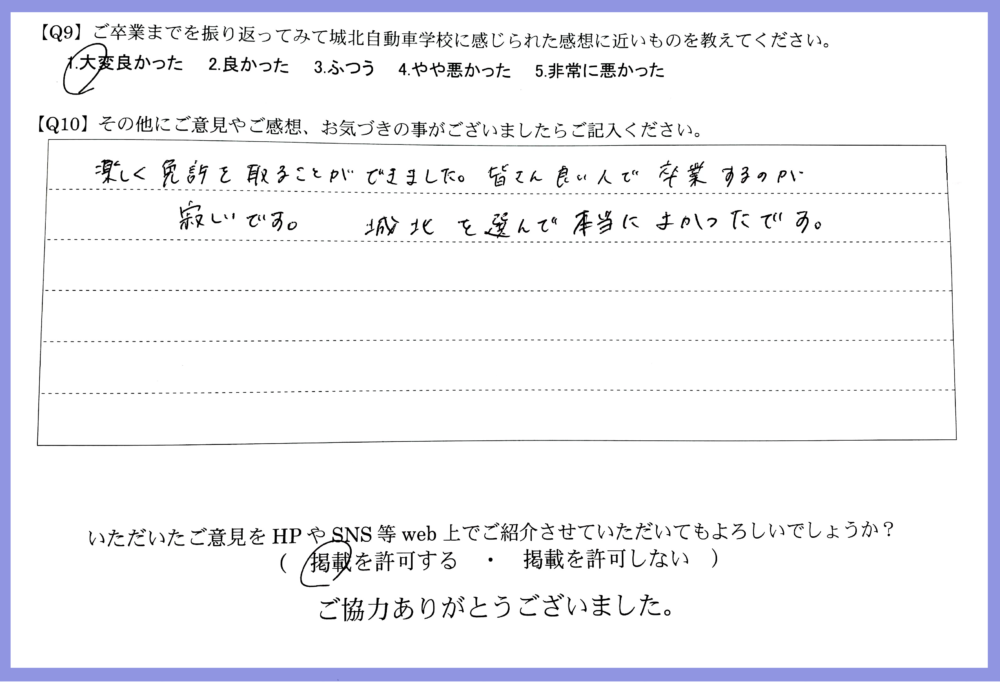 【Q9】ご卒業までを振り返ってみて城北自動車学校に感じられた感想に近いものを教えてください。
1.大変良かった　2.良かった　3.ふつう　4.やや悪かった　5.非常に悪かった
【Q10】その他にご意見やご感想、お気づきの事がございましたらご記入ください。
楽しく免許を取ることができました。皆さん良い人で卒業するのが
寂しいです。　城北を選んで本当によかったです。
いただいたご意見をHPやSNS等web上でご紹介させていただいてもよろしいでしょうか？
(　掲載を許可する　・　掲載を許可しない　)
ご協力ありがとうございました。